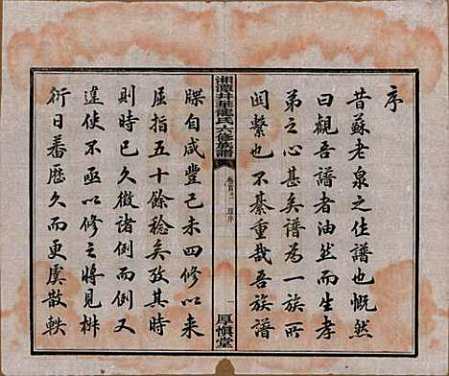 序
昔蘇老泉之作譜也慨然
曰觀吾譜者油然而生孝
弟之心甚矣譜為一族所
関繫也不綦重哉吾族譜
湘潭井埠龍氏六修族譜
卷首之一 原序
一 厚惧堂
牒自咸豐己未四修以来
屈指五十餘稔矣攷其時
則時已久徵諸例而例又
違使不亟以修之將見椒
衍日蕃歷久而更虞散軼